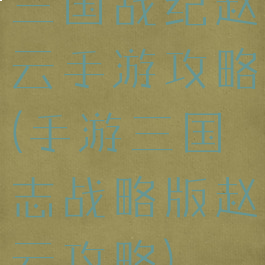 国战纪赵
手游攻略
(手游 国
志战略版赵
攻略)